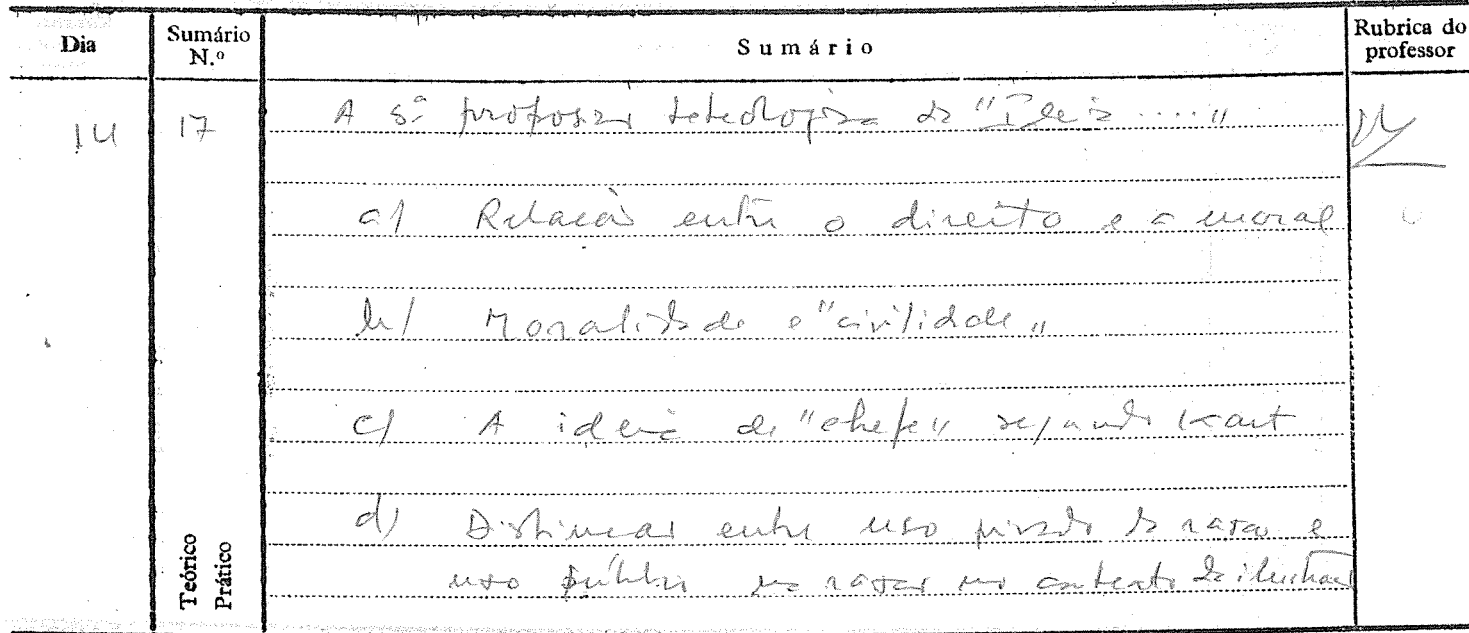 Dia
Sumário N.º
Sumário
Rubrica do professor
14
17
A 5ª proposição teleológica da "Ideia ...."
a) Relação entre o direito e a moral
b) Moralidade e "civilidade"
c) A ideia de "chefe" segundo Kant
d) Distinção entre uso privado da razão e
uso público da razão no contexto da ilustração
Teórico
Prático